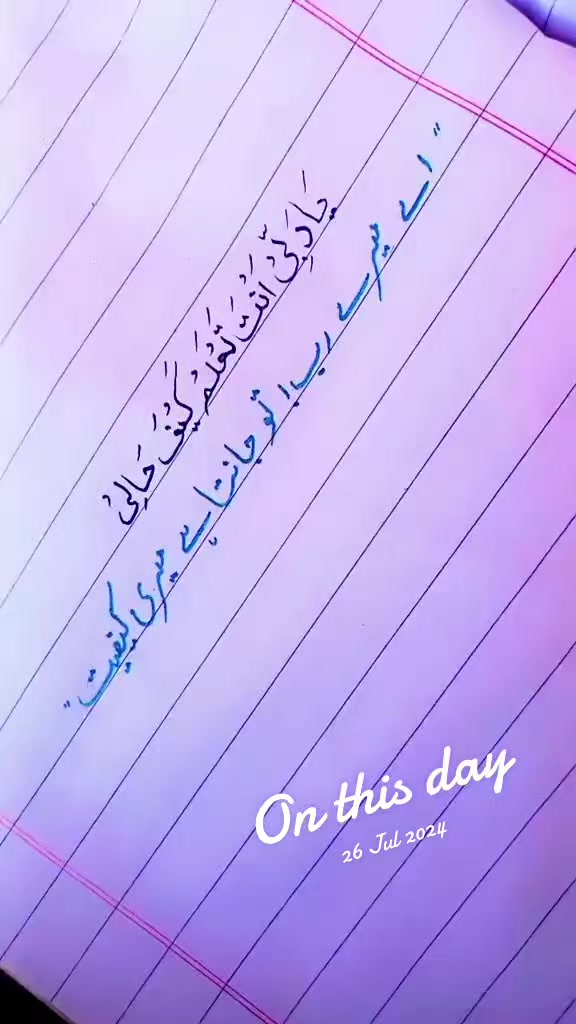 يَا رَبِّىْ اَنْتَ تَعْلَمُ كَيْفَ حَالِىْ
"اے میرے رب! تُو جانتا ہے میری کیفیت"
On this day
26 Jul 2024